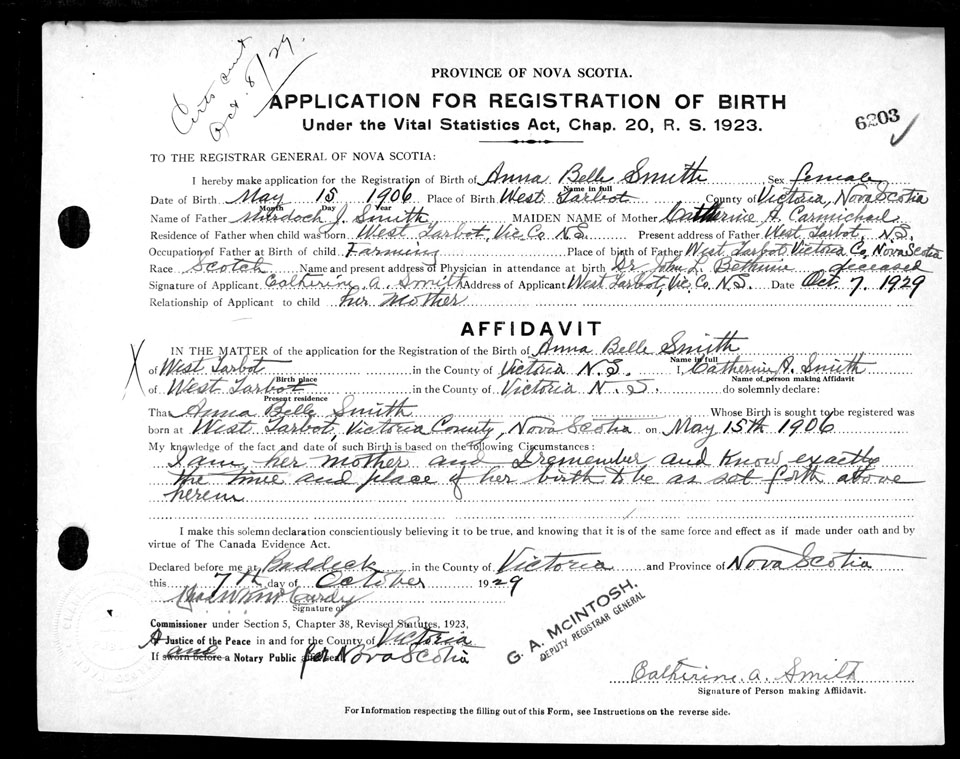 Certs sent
Oct. 8/29.
PROVINCE OF NOVA SCOTIA.
APPLICATION FOR REGISTRATION OF BIRTH
Under the Vital Statistics Act, Chap. 20, R. S. 1923.
6203
TO THE REGISTRAR GENERAL OF NOVA SCOTIA:
I hereby make application for the Registration of Birth of Anna Belle Smith Sex female
Name in full
Date of Birth May 15 1906 Place of Birth West Tarbot County of Victoria, Nova Scotia
Month Day Year
Name of Father Murdoch J. Smith MAIDEN NAME of Mother Catherine A. Carmichael
Residence of Father when child was born West Tarbot, Vic. Co. N.S. Present address of Father West Tarbot, N.S.
Occupation of Father at Birth of child Farming Place of birth of Father West Tarbot Victoria Co, Nova Scotia
Race Scotch Name and present address of Physician in attendance at birth Dr. John L. Bethune deceased
Signature of Applicant Catherine A. Smith Address of Applicant West Tarbot, Vic. Co. N.S. Date Oct 7, 1929
Relationship of Applicant to child her Mother
AFFIDAVIT
IN THE MATTER of the application for the Registration of the Birth of Anna Belle Smith
Name in full
X of West Tarbot in the County of Victoria N.S. I, Catherine A. Smith
Birth place Name of person making Affidavit
of West Tarbot in the County of Victoria N.S. do solemnly declare:
Present residence
That Anna Belle Smith Whose Birth is sought to be registered was
born at West Tarbot, Victoria County, Nova Scotia on May 15th 1906
My knowledge of the fact and date of such Birth is based on the following Circumstances:
I am her mother and I remember and know exactly
the time and place of her birth to be as set forth above
herein
I make this solemn declaration conscientiously believing it to be true, and knowing that it is of the same force and effect as if made under oath and by
virtue of The Canada Evidence Act.
Declared before me at Baddeck in the County of Victoria and Province of Nova Scotia
this 7th day of October 1929
McCurdy
Signature of
Commissioner under Section 5, Chapter 38, Revised Statutes, 1923,
A Justice of the Peace in and for the County of Victoria
and
If sworn before a Notary Public for Nova Scotia
G. A. MCINTOSH,
DEPUTY REGISTRAR GENERAL
Catherine A. Smith
Signature of Person making Affidavit.
For Information respecting the filling out of this Form, see Instructions on the reverse side.